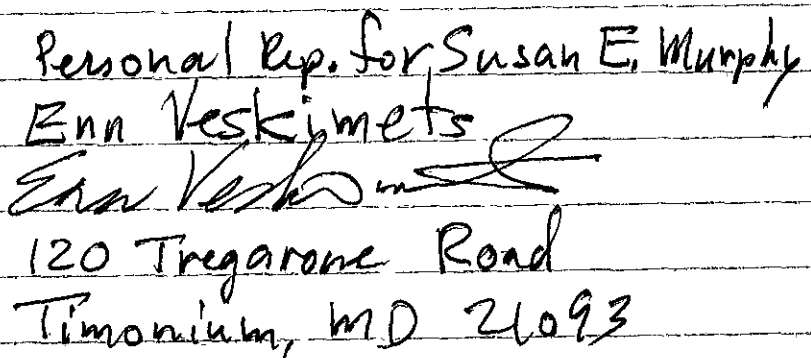 Personal Rep. for Susan E. Murphy
Enn Veskimets
Enn Veskimets
120 Tregarone Road
Timonium, MD 21093